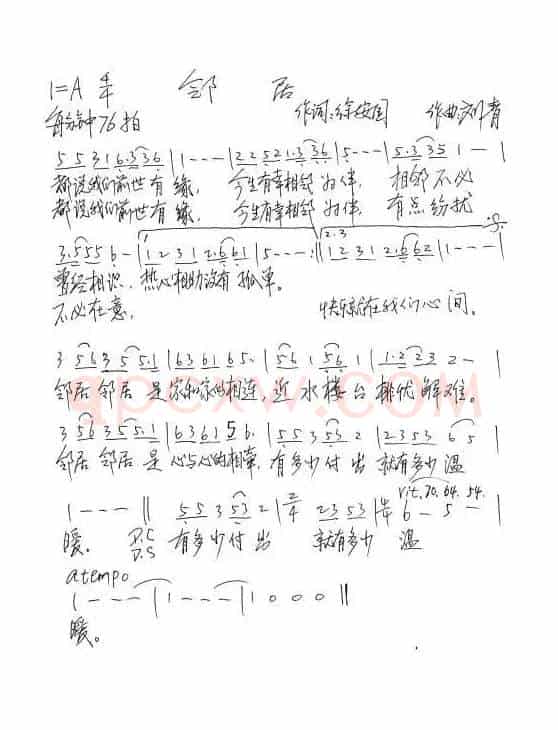 1=A 4/4 邻 居
每分钟76拍 作词:徐安国 作曲:刘青
5 5 3 1 6.3 3 6 | 1 - - - | 2 2 5 2 1.3 3 6 | 5 - - - | 5.3 3 5 1 - |
都说我们前世有缘, 今生有幸相邻为伴, 相邻不必
都说我们前世有缘, 今生有幸相邻为伴, 有点纷扰
3.5 5 5 6 - | 1. 1 2 3 1 2.6 6 1 | 5 - - - :|| 2.3 1 2 3 1 2.6 6 2 | 1 - - - |
曾经相识, 热心相助没有孤单。
不必在意, 快乐就在我们心间。
3 5 6 3 5 5.1 | 6 3 6 1 6 5. | 5 6 1 5 6 1 | 1.2 2 3 2 - |
邻居 邻居 是家和家的相连, 近水楼台排忧解难。
3 5 6 3 5 5.1 | 6 3 6 1 5 6. | 5 5 3 5 3 2 | 2 3 5 3 6 5 |
邻居 邻居 是心与心的相牵, 有多少付出 就有多少温
rit. 70. 64. 54.
1 - - - || 5 5 3 5 3 2 | 2/4 2 3 5 3 | 4/4 6 - 5 - |
暖。 D.C D.S 有多少付出 就有多少 温
a tempo
1 - - - | 1 - - - | 1 0 0 0 ||
暖。
qpcxw.com